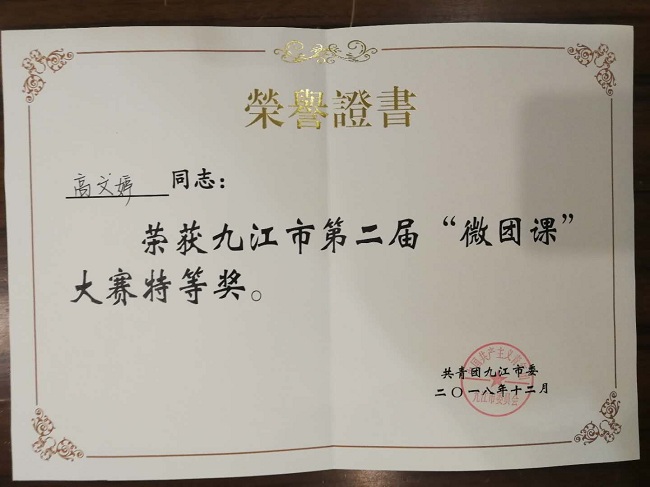 榮譽證書
高文婷 同志：
荣获九江市第二届“微团课”
大赛特等奖。
共青团九江市委
二〇一八年十二月
九江市委员会